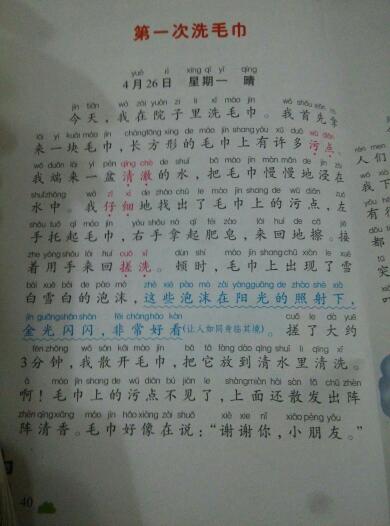 第一次洗毛巾
yuè rì xīng qī yī qíng
4月26日 星期一 晴
jīn tiān wǒ zài yuàn zi lǐ xǐ máo jīn wǒ shǒu xiān ná
今天，我在院子里洗毛巾。我首先拿
lái yí kuài máo jīn chángfāng xíng de máo jīn shang yǒu xǔ duō wū diǎn
来一块毛巾，长方形的毛巾上有许多污点。
wǒ duān lái yì pén qīng chè de shuǐ bǎ máo jīn màn màn de jìn zài
我端来一盆清澈的水，把毛巾慢慢地浸在
shuǐ zhōng wǒ zǐ xì de zhǎo chū le máo jīn shang de wū diǎn zuǒ
水中。我仔细地找出了毛巾上的污点，左
shǒu tuō qǐ máo jīn yòu shǒu ná qǐ féi zào lái huí de cā jiē
手托起毛巾，右手拿起肥皂，来回地擦。接
zhe yòng shǒu lái huí cuō xǐ dùn shí máo jīn shang chū xiàn le xuě
着用手来回搓洗。顿时，毛巾上出现了雪
bái xuě bái de pào mò zhè xiē pào mò zài yáng guāng de zhào shè xià
白雪白的泡沫，这些泡沫在阳光的照射下，
jīn guāng shǎn shǎn fēi cháng hǎo kàn cuō le dà yuē
金光闪闪，非常好看(让人如同身临其境)。搓了大约
fēn zhōng wǒ sǎn kāi máo jīn bǎ tā fàng dào qīng shuǐ li qīng xǐ
3分钟，我散开毛巾，把它放到清水里清洗。
ā máo jīn shang de wū diǎn bú jiàn le shàng miàn hái sàn fā chū zhèn
啊！毛巾上的污点不见了，上面还散发出阵
zhèn qīng xiāng máo jīn hǎo xiàng zài shuō xiè xie nǐ xiǎo péng yǒu
阵清香。毛巾好像在说：“谢谢你，小朋友。”
40
人们